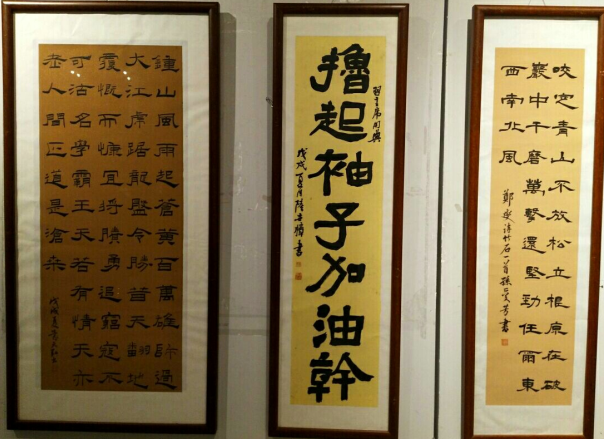 鍾山風雨起蒼黃百萬雄師過
大江虎踞龍盤今勝昔天翻地
覆慨而慷宜將賸勇追窮寇不
可沽名學霸王天若有情天亦
老人間正道是滄桑
戊戌夏
習主席用典
擼起袖子加油幹
戊戌夏月陸書
咬定青山不放松立根原在破
巖中千磨萬擊還堅勁任爾東
西南北風
鄭燮詩竹石一首孫芳書